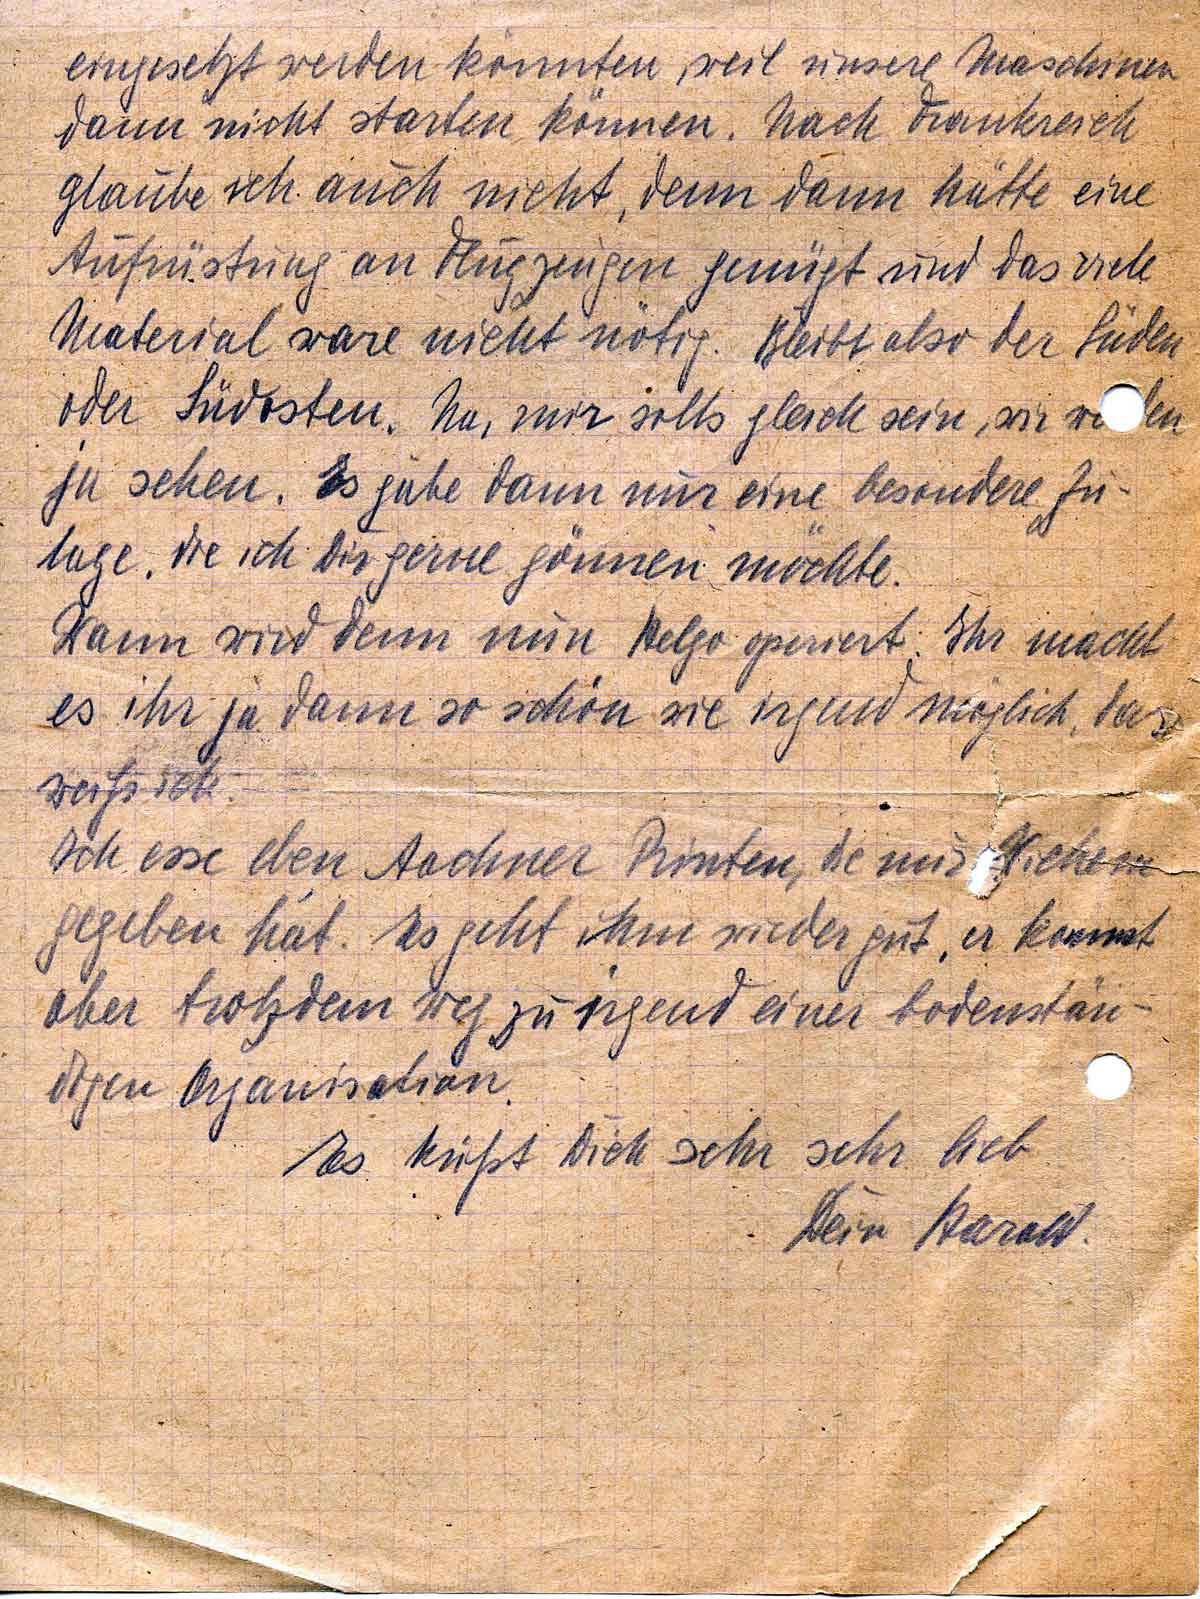 eingesetzt werden könnten, weil unsere Maschinen
dann nicht starten können. Nach Frankreich
glaube ich auch nicht, denn dann hätte eine
Aufrüstung an Flugzeugen genügt und das viele
Material wäre nicht nötig. Bleibt also der Süden
oder Südosten. Na, mir solls gleich sein, wir werden
ja sehen. Es gäbe dann nur eine besondere Zu-
lage, die ich Dir gerne gönnen möchte.
Wann wird denn nun Helga operiert. Ihr macht
es ihr ja dann so schön wie irgend möglich, das
weiß ich.
Ich esse eben Aachner Printen, die mir
gegeben hat. Es geht ihm wieder gut, er kommt
aber trotzdem weg zu irgend einer bodenstän-
digen Organisation.
Es küßt Dich sehr sehr lieb
Dein Harald.